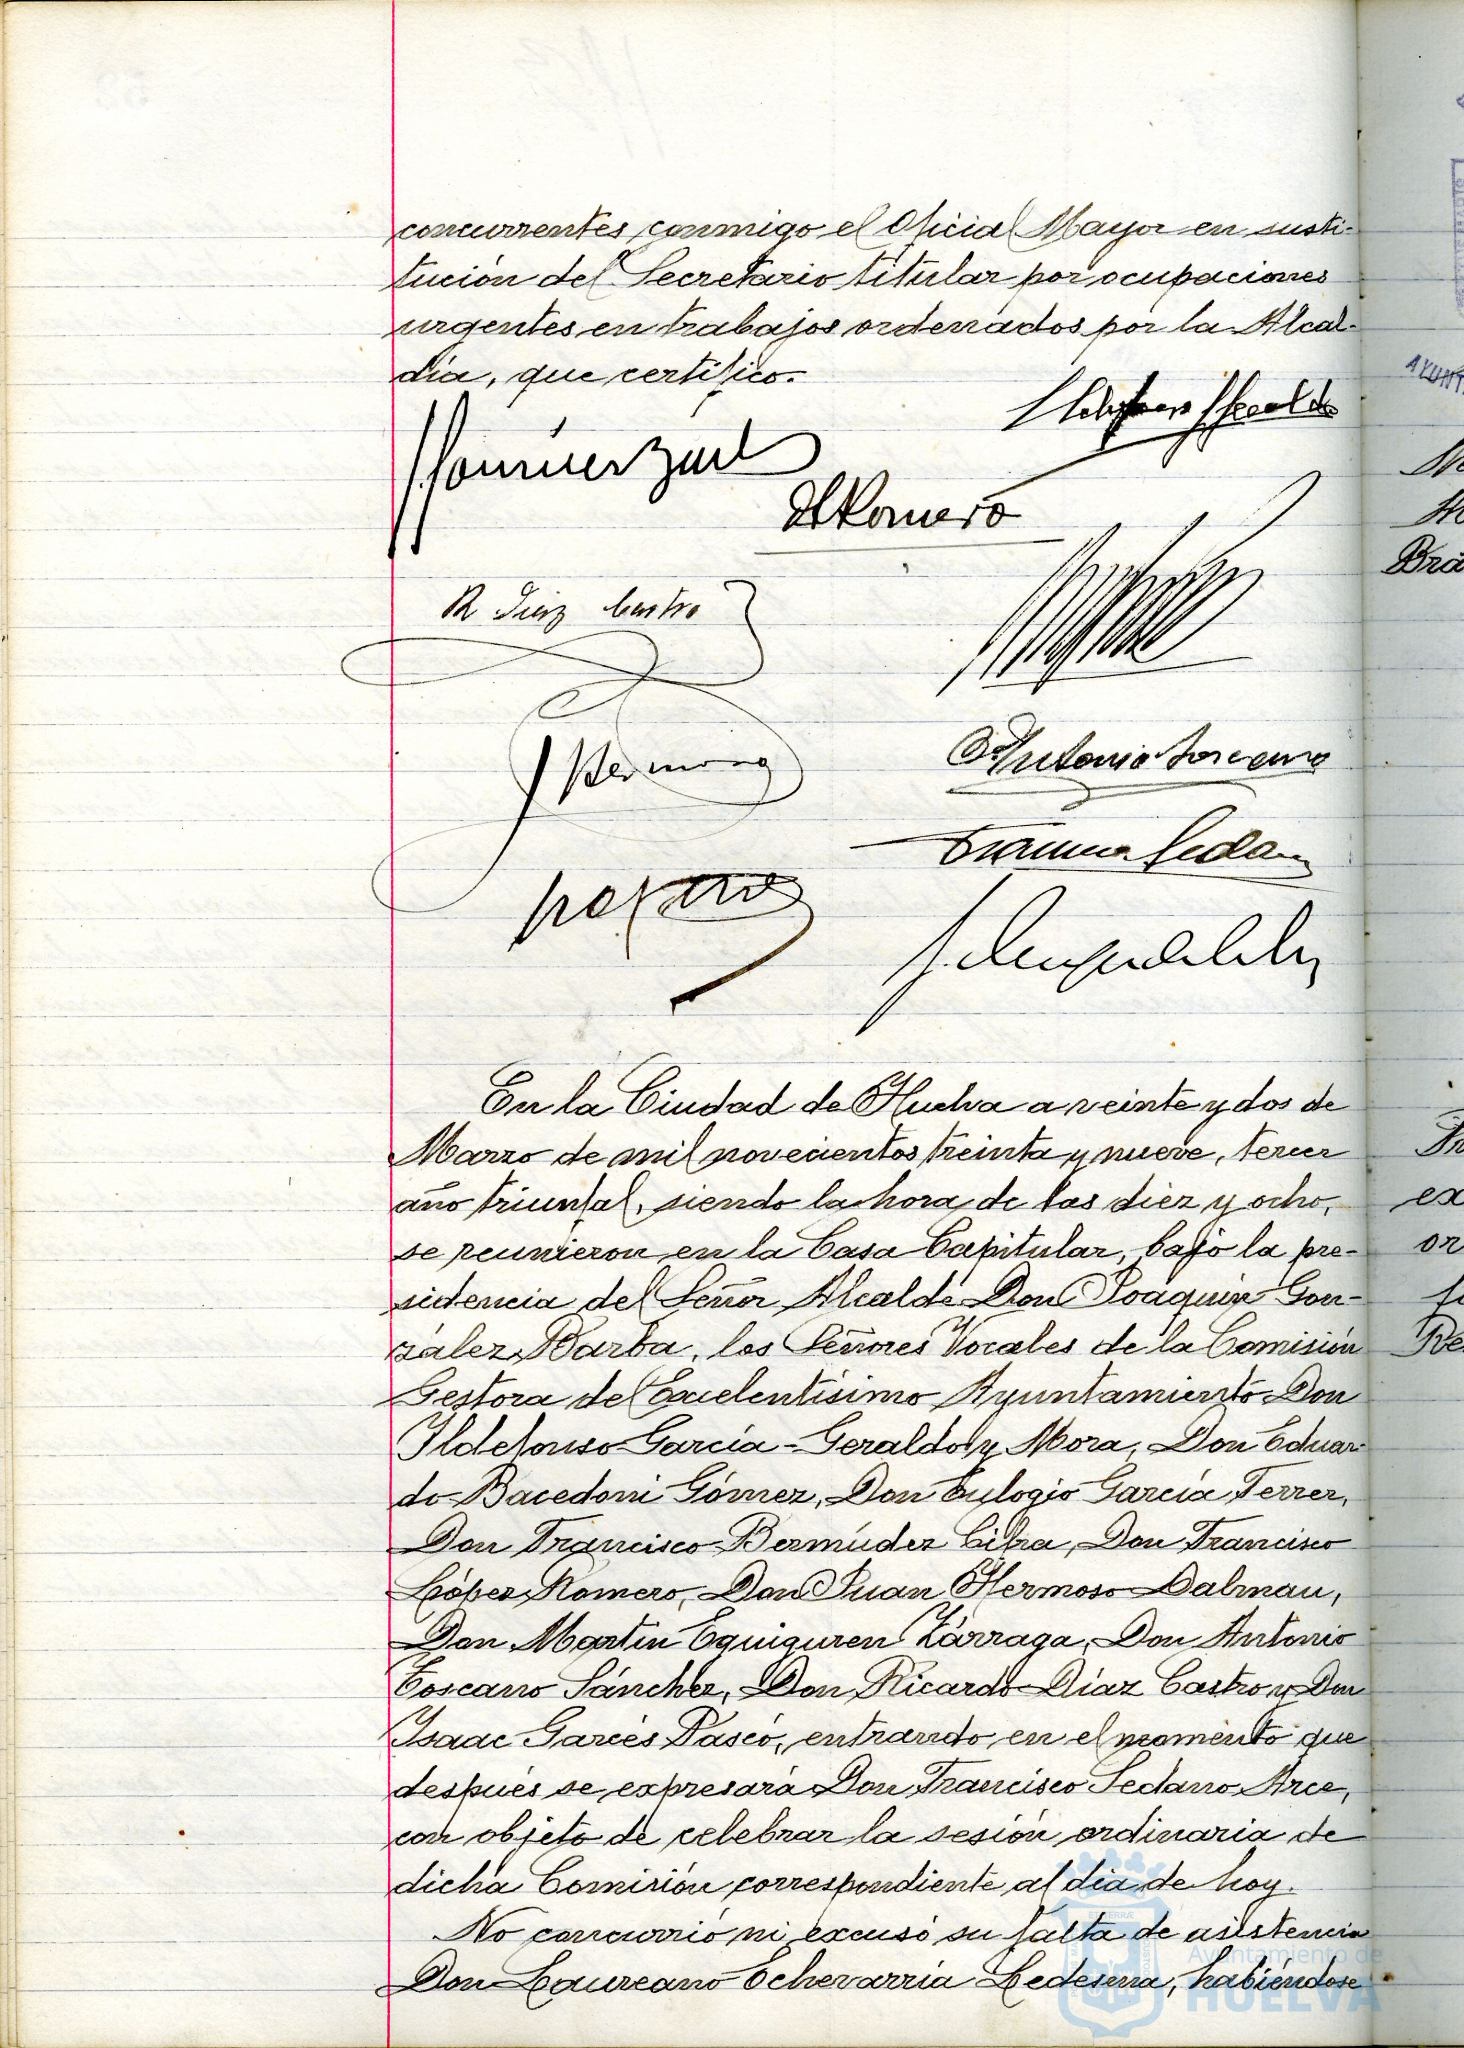 concurrentes conmigo el Oficial Mayor en susti-
tución del Secretario titular por ocupaciones
urgentes en trabajos ordenados por la Alcal-
día, que certifico.
Romero
R Diaz Castro
Antonio Toscano
Sedano
En la Ciudad de Huelva a veinte y dos de
Marzo de mil novecientos treinta y nueve, tercer
año triunfal, siendo la hora de las diez y ocho,
se reunieron en la Casa Capitular, bajo la pre-
sidencia del Señor Alcalde Don Joaquín Gon-
zález Barba, los Señores Vocales de la Comisión
Gestora del Excelentísimo Ayuntamiento Don
Ildefonso García-Geraldo y Mora, Don Eduar-
do Bacedoni Gómez, Don Eulogio García Ferrer,
Don Francisco Bermúdez Cifra, Don Francisco
López Romero, Don Juan Hermoso Dalmau,
Don Martín Eguiguren Zárraga, Don Antonio
Toscano Sánchez, Don Ricardo Díaz Castro y Don
Isaac Garcés Pasco, entrando en el momento que
después se expresará Don Francisco Sedano Arce,
con objeto de celebrar la sesión ordinaria de
dicha Comisión correspondiente al día de hoy.
No concurrió ni excusó su falta de asistencia
Don Laureano Echevarría Ledesma, habiéndose
Ayuntamiento de
HUELVA